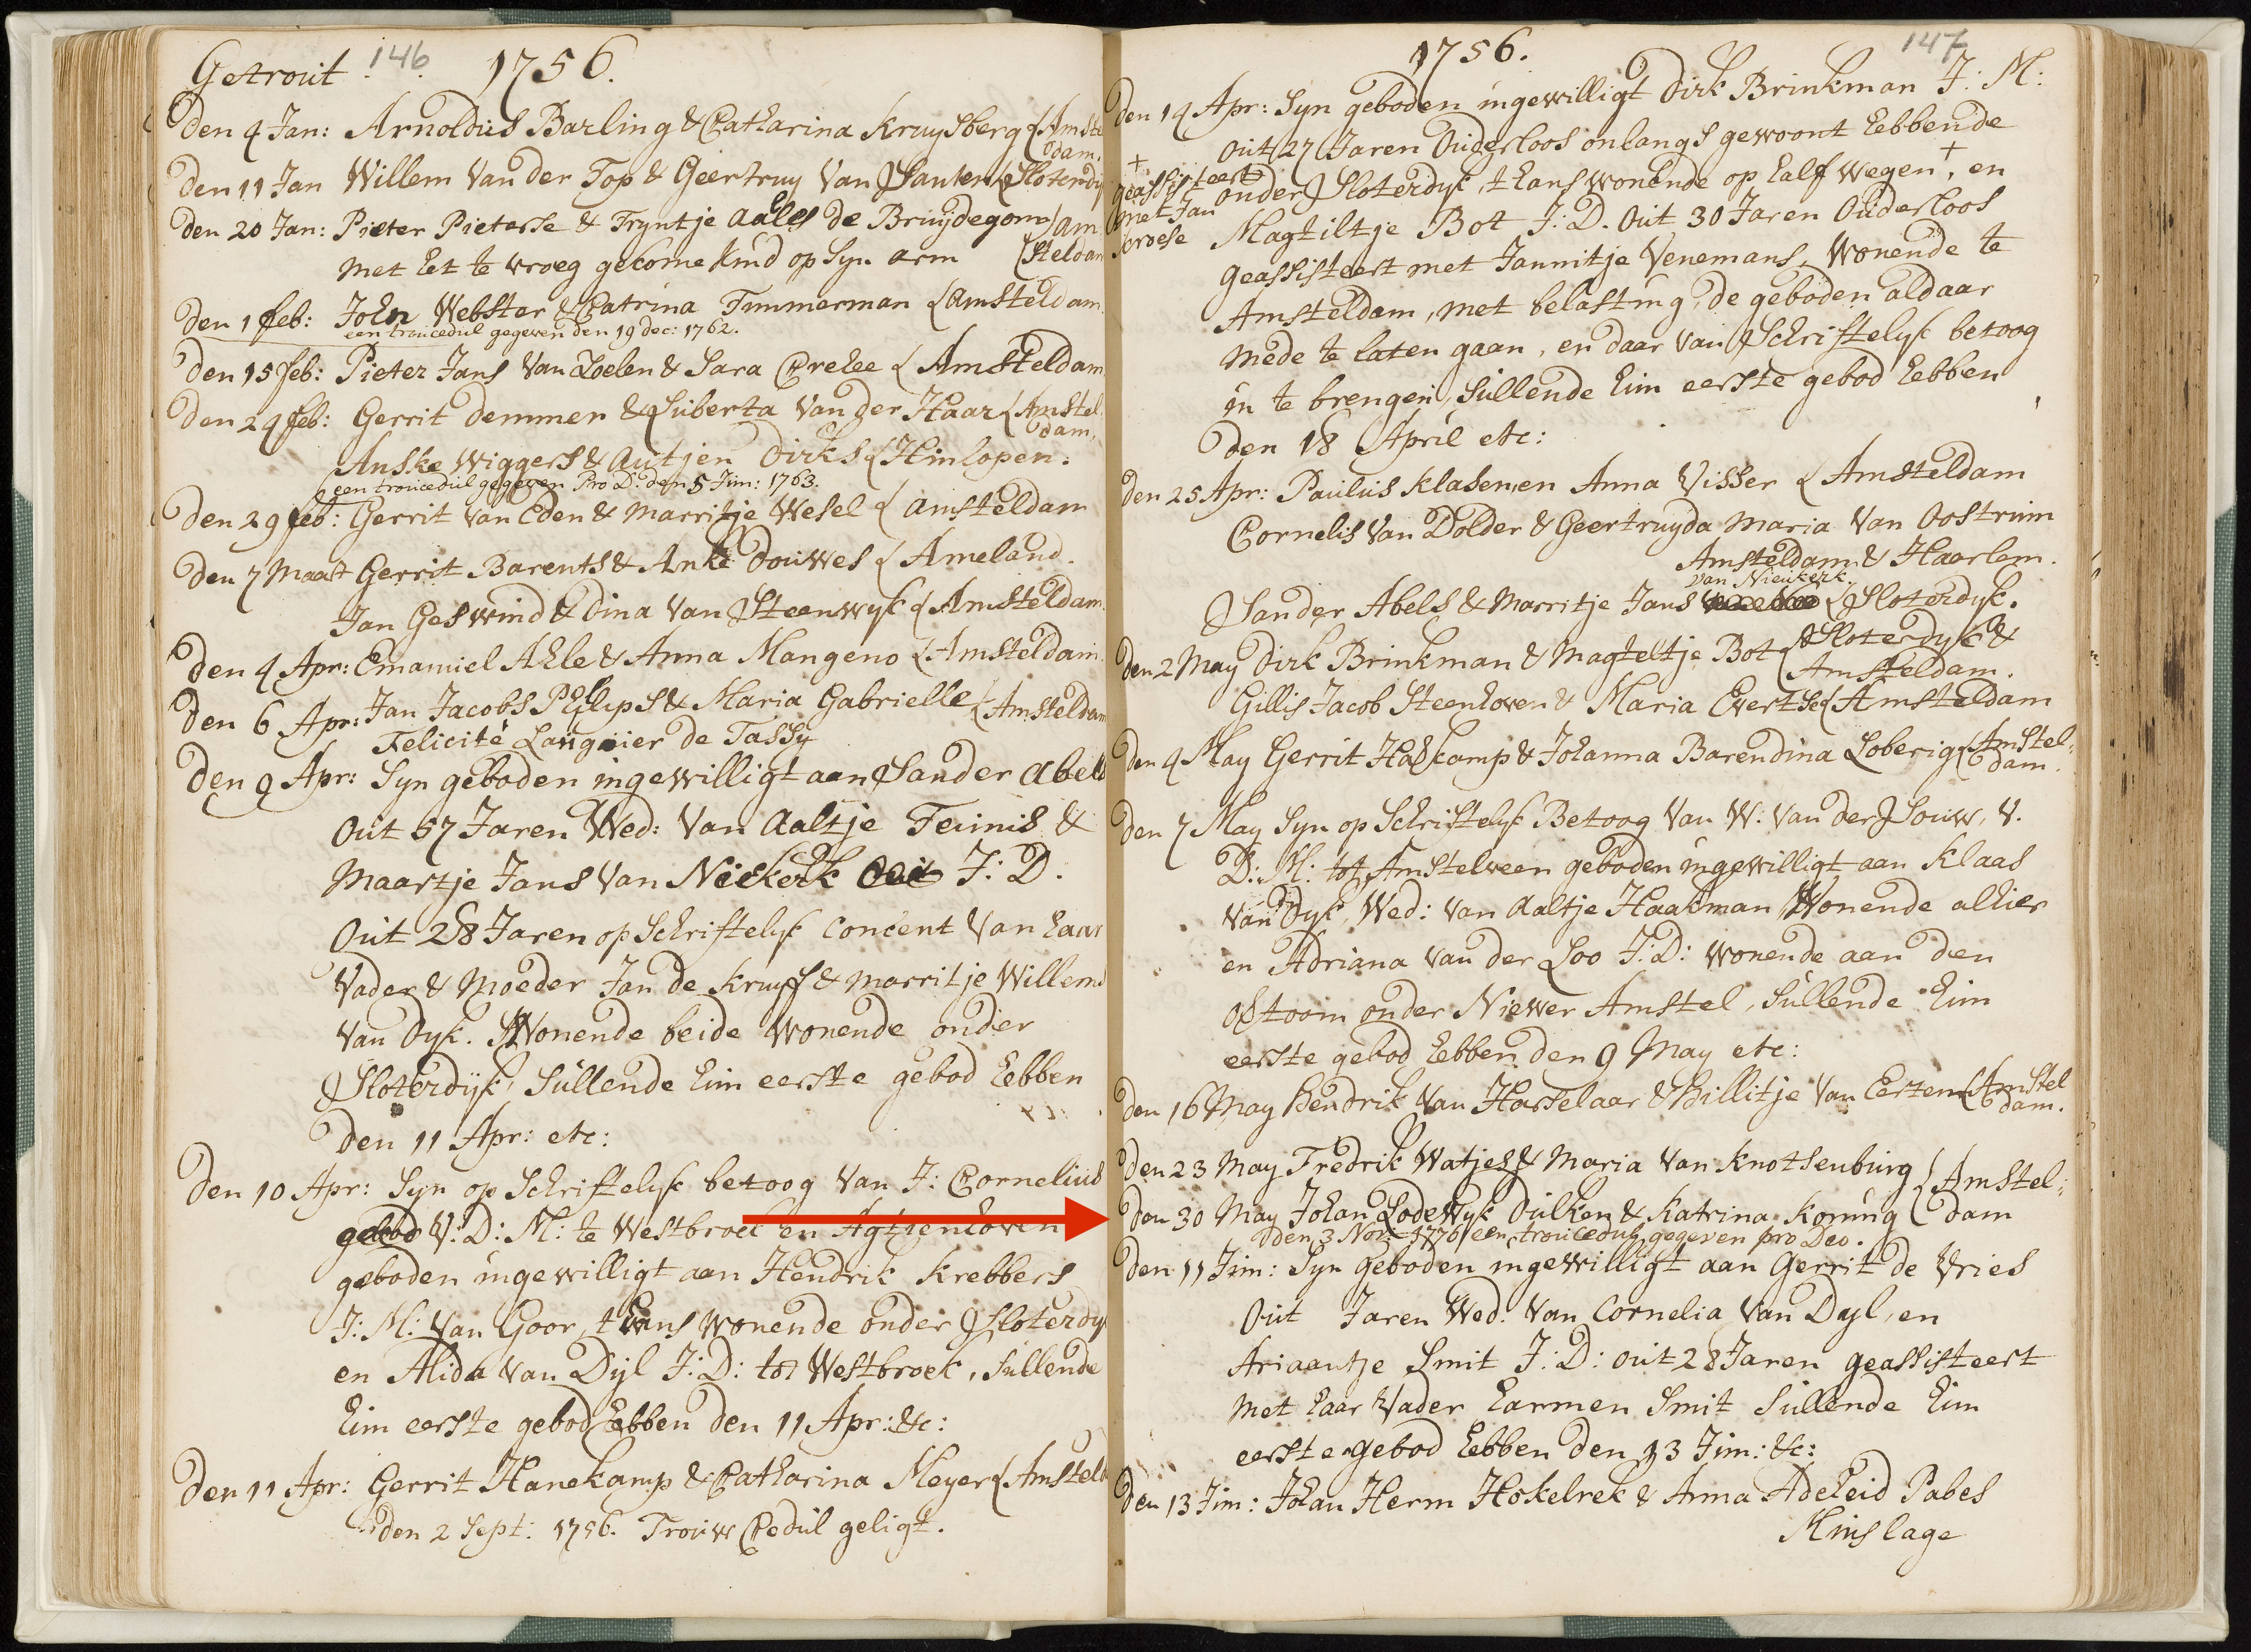 Getrout 146 1756.
den 4 Jan: Arnoldus Barling & Catharina Kruysberg { Amstel
dam.
den 11 Jan Willem Van der Top & Geertruy Van Santen { Sloterdy
den 20 Jan: Pieter Pieterse & Tryntje Aales de Bruydegom } am
met het te vroeg gekome kind op Syn arm { steldam
den 1 feb: John Webster & Catrina Timmerman { Amsteldam
een troucedul gegeven den 19 dec: 1762.
den 15 feb: Pieter Jans Van Loelen & Sara Crehee { Amsteldam
den 24 feb: Gerrit Demmer & Suberta Van der Haar { Amstel
dam.
Anske Wiggers & Autjen Dirks { Hinlopen.
een troucedul gegeven Pro D. den 5 Jun: 1763.
den 29 feb: Gerrit Van Eden & Marritje Wesel { Amsteldam
den 7 Maart Gerrit Barents & Anke Douwes { Ameland.
Jan Geswind & Dina Van Steenwyk { Amsteldam
den 4 Apr: Emanuel Ahle & Anna Mangeno { Amsteldam
den 6 Apr: Jan Jacobs Phlips & Maria Gabrielle { Amsteldam
Felicité Langnier de Tassy
den 9 Apr: Syn geboden ingewilligt aan Sander Abels
Out 57 Jaren Wed: Van Aaltje Teunis &
Maartje Jans Van Niekerk J: D.
Out 28 Jaren op Schriftelyk Concent Van haar
Vader & Moeder Jan de Kruyff & Marritje Willems
Van Dyk. Wonende beide Wonende onder
Sloterdyk, Sullende hun eerste gebod hebben
den 11 Apr: etc:
den 10 Apr: Syn op Schriftelyk betoog Van J: Cornelius
gebod V: D: M: te Westbroek en Agtienhoven
geboden ingewilligt aan Hendrik Krebbers
J: M: Van Goor, thans wonende onder Sloterdyk
en Alida Van Dyl J: D: tot Westbroek, Sullende
hun eerste gebod hebben den 11 Apr: &c:
den 11 Apr: Gerrit Hanekamp & Catharina Meyer { Amsteld
den 2 Sept: 1756. Trouw Cedul geligt.
1756. 147
den 14 Apr: Syn geboden ingewilligt Dirk Brinkman J: M:
Out 27 Jaren Ouderloos onlangs gewoont hebbende
onder Sloterdyk, thans wonende op half wegen +, en
+ geassisteert
met Jan
Magtiltje Bot J: D. Out 30 Jaren Ouderloos
geassisteert met Jannitje Venemans, Wonende te
Amsteldam, met belasting, de geboden aldaar
mede te laten gaan, en daar van Schriftelyk betoog
in te brengen, Sullende hun eerste gebod hebben
den 18 April etc:
den 25 Apr: Paulus Klasen en Anna Visser { Amsteldam
Cornelis Van Dolder & Geertruyda Maria Van Oostrum
Amsteldam & Haarlem.
van Nieukerk.
Sander Abels & Marritje Jans { Sloterdyk.
den 2 May Dirk Brinkman & Magteltje Bot { Sloterdyk &
Amsteldam.
Gillis Jacob Steenhoven & Maria Evertse { Amsteldam
den 4 May Gerrit Haskamp & Johanna Barendina Loberig { Amstel:
dam.
den 7 May Syn op Schriftelyk Betoog Van W: Van der Souw, V.
D: M: tot Amstelveen geboden ingewilligt aan Klaas
Van Dyk, Wed: Van Aaltje Haakman Wonende alhier
en Adriana Van der Loo J: D: wonende aan den
Ostoom onder Niewer Amstel, Sullende hun
eerste gebod hebben den 9 May etc:
den 16 May Hendrik Van Hasselaar & Hillitje Van Eerten { Amstel
dam.
den 23 May Fredrik Watjes & Maria Van Knotsenburg { Amstel:
den 30 May Johan Lodewyk Dulken & Katrina Koning { dam
den 3 Nov: 1776 een troucedul gegeven pro Deo.
den 11 Jun: Syn geboden ingewilligt aan Gerrit de Vries
Out Jaren Wed. Van Cornelia Van Dyl, en
Ariaantje Smit J: D: out 28 Jaren geassisteert
met haar Vader Harmen Smit Sullende hun
eerste gebod hebben den 13 Jun: &c:
den 13 Jun: Johan Herm Hokelrek & Anna Adeheid Pabes
Minslage